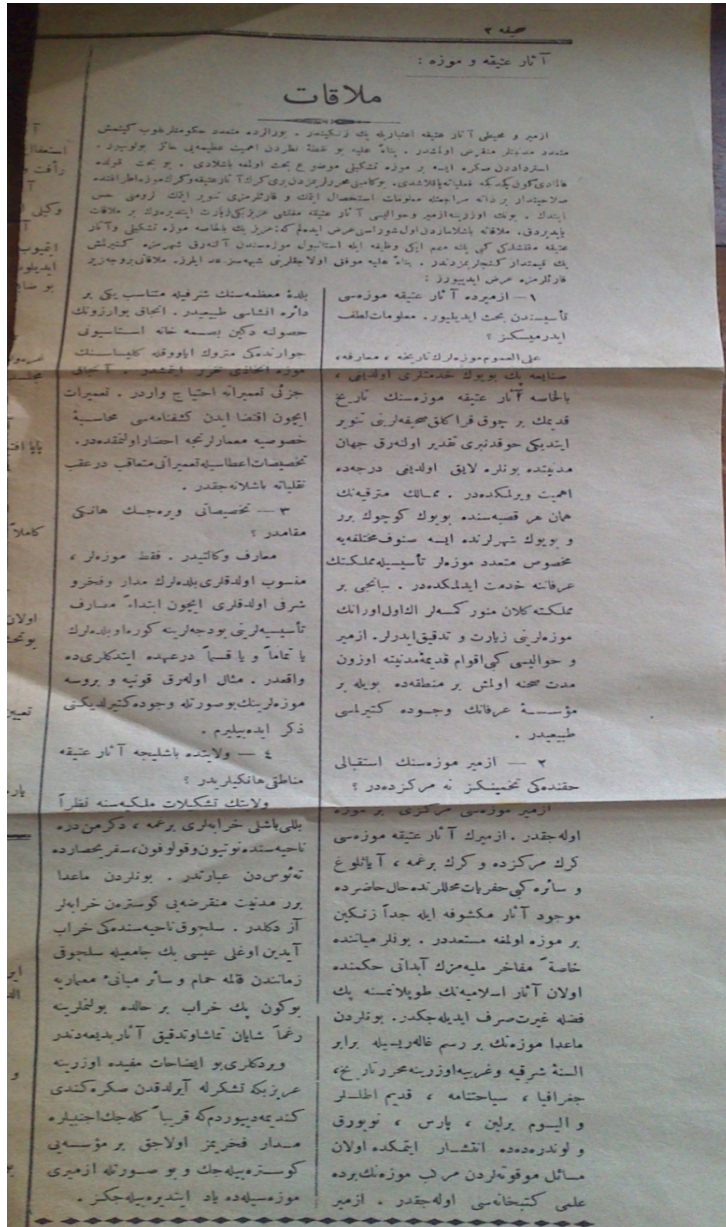 صحیفه ٣
آثار عتیقه و موزه :
ملاقات
ازمیر و محیطی آثار عتیقه اعتباریله پك زنکیندر . بورالرده متعدد حکومتلر کلوب کیتمش
متعدد مدنیتلر منقرض اولمشدر . بناءً علیه بو نقطهٔ نظردن اهمیت عظیمه‌یی حائز بولنیور .
استرداددن صکره ایسه بر موزه تشکیلی موضوع بحث اولمغه باشلادی . بو بحث قولده
قالمادی کون کچدکجه فعلیاته یاقلاشدی .
صلاحیتدار بر ذاته مراجعتله معلومات استحصال ایتمك و قارئلرمزی تنویر ایتمك لزومی حس
ایتدك . بونك اوزرینه ازمیر و حوالیسی آثار عتیقه مفتشی عزیز بکی زیارت ایده‌رك بر ملاقات
یاپدیردق . ملاقاته باشلامازدن اول شوراسنی عرض ایده‌لم که : عزیز بك بالخاصه موزه تشکیلی و آثار
عتیقه مفتشلکی کبی یکدیگرندن مهم ایکی وظیفه ایله استانبول موزه‌سندن آلنه‌رق شهرمزه کتیرلمش
پك قیمتدار کنجلریمزدندر . بناءً علیه موفق اولاجقلرینی شبهه‌سز عد ایلرز . ملاقاتی بروجه زیر
قارئلرمزه عرض ایدییورز :
١ — ازمیرده آثار عتیقه موزه‌سی
تأسیسندن بحث ایدیلیور . معلومات لطف
ایدرمیسکز ؟
علی العموم موزه‌لرك تاریخه ، معارفه ،
صنایعه پك بویوك خدمتلری اولدیغی ،
بالخاصه آثار عتیقه موزه‌سنك تاریخ
قدیمك بر چوق قراکلق صحیفه‌لرینی تنویر
ایتدیکی چوقدنبری تقدیر اولنه‌رق جهان
مدنیتده بونلره لایق اولدیغی درجه‌ده
اهمیت ویرلمکده‌در . ممالك مترقیه‌نك
همان هر قصبه‌سنده بویوك کوچوك برر
و بویوك شهرلرنده ایسه صنوف مختلفه‌یه
مخصوص متعدد موزه‌لر تأسیسیله مملکتك
عرفاننه خدمت ایدلمکده‌در . یبانجی بر
مملکته کلان منور کمسه‌لر اك اول اورانك
موزه‌لرینی زیارت و تدقیق ایدرلر . ازمیر
و حوالیسی کبی اقوام قدیمهٔ مدنیته اوزون
مدت صحنه اولمش بر منطقه‌ده بویله بر
مؤسسهٔ عرفانك وجوده کتیرلمسی
طبیعیدر .
٢ — ازمیر موزه‌سنك استقبالی
حقنده‌کی تخمینکز نه مرکزده‌در ؟
ازمیر موزه‌سی مرکزی بر موزه
اوله‌جقدر . ازمیرك آثار عتیقه موزه‌سی
کرك مرکزده و کرك برغمه ، آیاثلوغ
و سائره کبی حفریات محللرنده حال حاضرده
موجود آثار مکشوفه ایله جداً زنکین
بر موزه اولمغه مستعددر . بونلر میاننده
خاصةً مفاخر ملیه‌مزك آبداتی حکمنده
اولان آثار اسلامیه‌نك طوپلانمسنه پك
فضله غیرت صرف ایدیله‌جکدر . بونلردن
ماعدا موزه‌نك بر رسم غالەریسیله برابر
السنهٔ شرقیه و غربیه اوزرینه محرر تاریخ ،
جغرافیا ، سیاحتنامه ، قدیم اطلسلر
و الیوم برلین ، پارس ، نویورق
و لوندره‌ده انتشار ایتمکده اولان
مسائل موقوته‌لردن مرکب موزه‌نك برده
علمی کتبخانه‌سی اوله‌جقدر . ازمیر
بلدهٔ معظمه‌سنك شرفیله متناسب یکی بر
دائره انشاسی طبیعیدر . انجاق بو آرزونك
حصولنه دکین بصمه خانه استاسیونی
جوارنده‌کی متروك ایاووقله کلیساسنك
موزه اتخاذی تقرر ایتمشدر . آنجاق
جزئی تعمیراته احتیاج واردر . تعمیرات
ایچون اقتضا ایدن کشفنامه‌سی محاسبهٔ
خصوصیه معمارلرنجه احضار اولنمقده‌در .
تخصیصات اعطاسیله تعمیراتی متعاقب در عقب
نقلیاته باشلانه‌جقدر .
٣ — تخصیصاتی ویره‌جك هانکی
مقامدر ؟
معارف وکالتیدر . فقط موزه‌لر ،
منسوب اولدقلری بلده‌لرك مدار وفخر و
شرفی اولدقلری ایچون ابتداءً مصارف
تأسیسیه‌لرینی بودجه‌لرینه کوره او بلده‌لرك
یا تماماً و یا قسماً درعهده ایتدکلری ده
واقعدر . مثال اوله‌رق قونیه و بروسه
موزه‌لرینك بو صورتله وجوده کتیرلدیکنی
ذکر ایده‌بیلیرم .
٤ — ولایتده باشلیجه آثار عتیقه
مناطقی هانکیلریدر ؟
ولایتك تشکیلات ملکیه‌سنه نظراً
بللی باشلی خرابه‌لری برغمه ، دکرمن دره
ناحیه‌سنده نوتیون و قولوفون ، سفریحصارده
ته‌ئوس دن عبارتدر . بونلردن ماعدا
برر مدنیت منقرضه‌یی کوسترن خرابه‌لر
آز دکلدر . سلجوق ناحیه‌سنده‌کی خراب
آیدین اوغلی عیسی بك جامعیله سلجوق
زمانندن قالمه حمام و سائر مبانیٔ معماریه
بوکون پك خراب بر حالده بولنمالرینه
رغماً شایان تماشا و تدقیق آثار بدیعه‌دندر
ویردکلری بو ایضاحات مفیده اوزرینه
عزیز بکه تشکر له آیرلدقدن صکره کندی
کندیمه دییوردم که قریباً کله‌جك اجنبیلره
مدار فخریمز اولاجق بر مؤسسه‌یی
کوستره‌بیله‌جك و بو صورتله ازمیری
موزه‌سیله‌ده یاد ایتدیره‌بیله‌جکز .